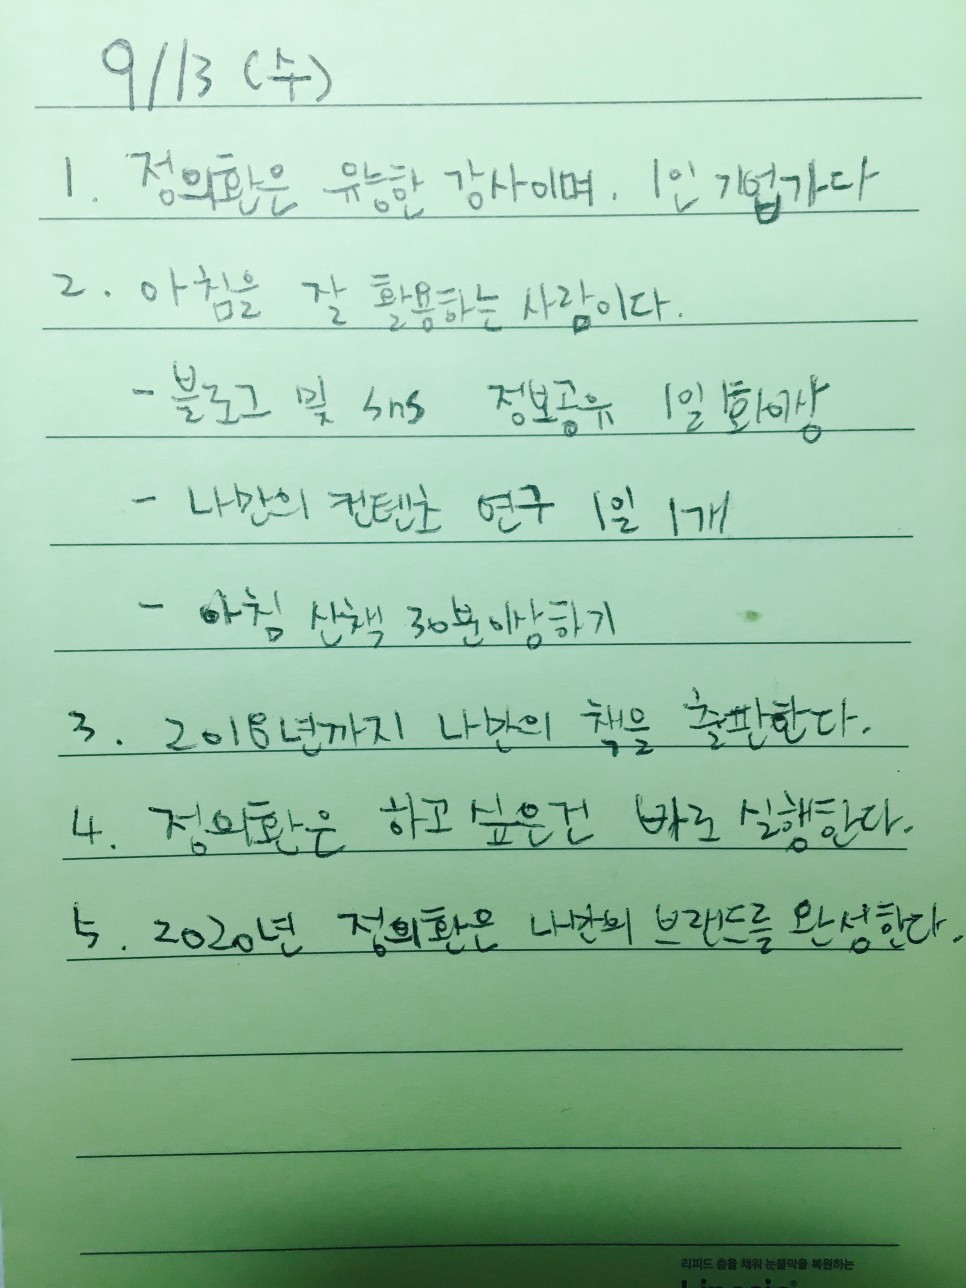 9/13 (수)
1. 정의환은 유능한 강사이며. 1인 기업가다
2. 아침을 잘 활용하는 사람이다.
- 블로그 및 sns 정보공유 1일 1회이상
- 나만의 컨텐츠 연구 1일 1개
- 아침 산책 30분이상하기
3. 2018년까지 나만의 책을 출판한다.
4. 정의환은 하고싶은건 바로 실행한다.
5. 2020년 정의환은 나만의 브랜드를 완성한다.
리피드 층을 채워 눈물막을 복원하는